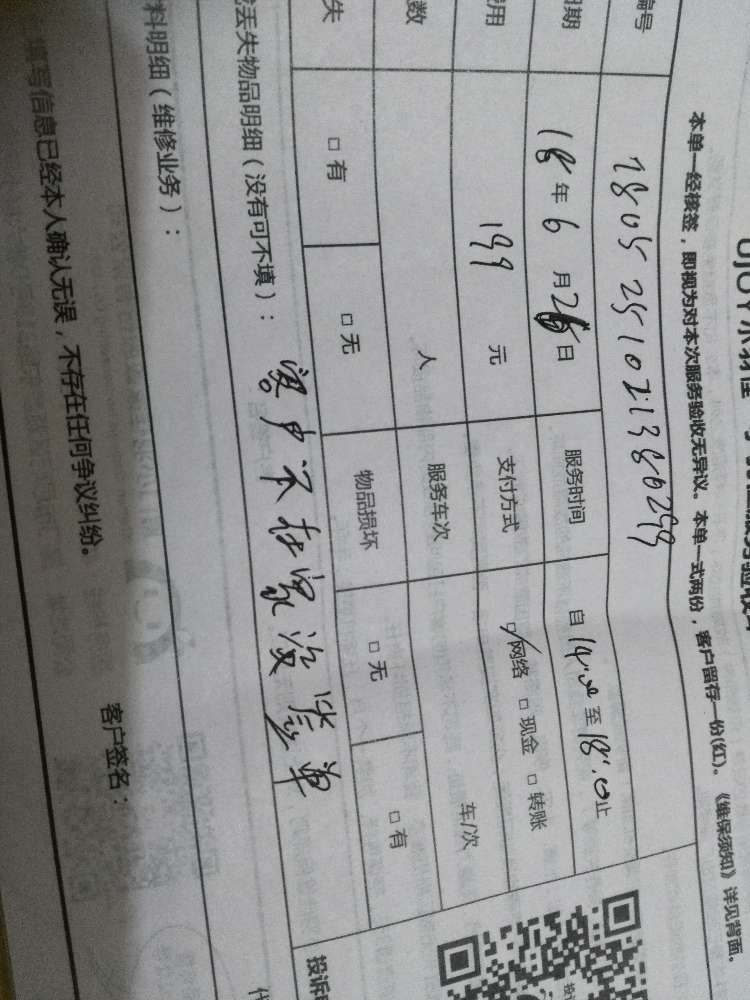 本单一经核签，即视为对本次服务验收无异议。本单一式两份，客户留存一份(红)。《维保须知》详见背面。
编号
日期 18年6月26日 服务时间 自14:00至18:00止
费用 199 元 支付方式 ☑网络 □现金 □转账
数 人 服务车次 车/次
失 □有 □无 物品损坏 □无 □有
丢失物品明细（没有可不填）：客户不在家没签单
料明细（维修业务）：
填写信息已经本人确认无误，不存在任何争议纠纷。
客户签名：